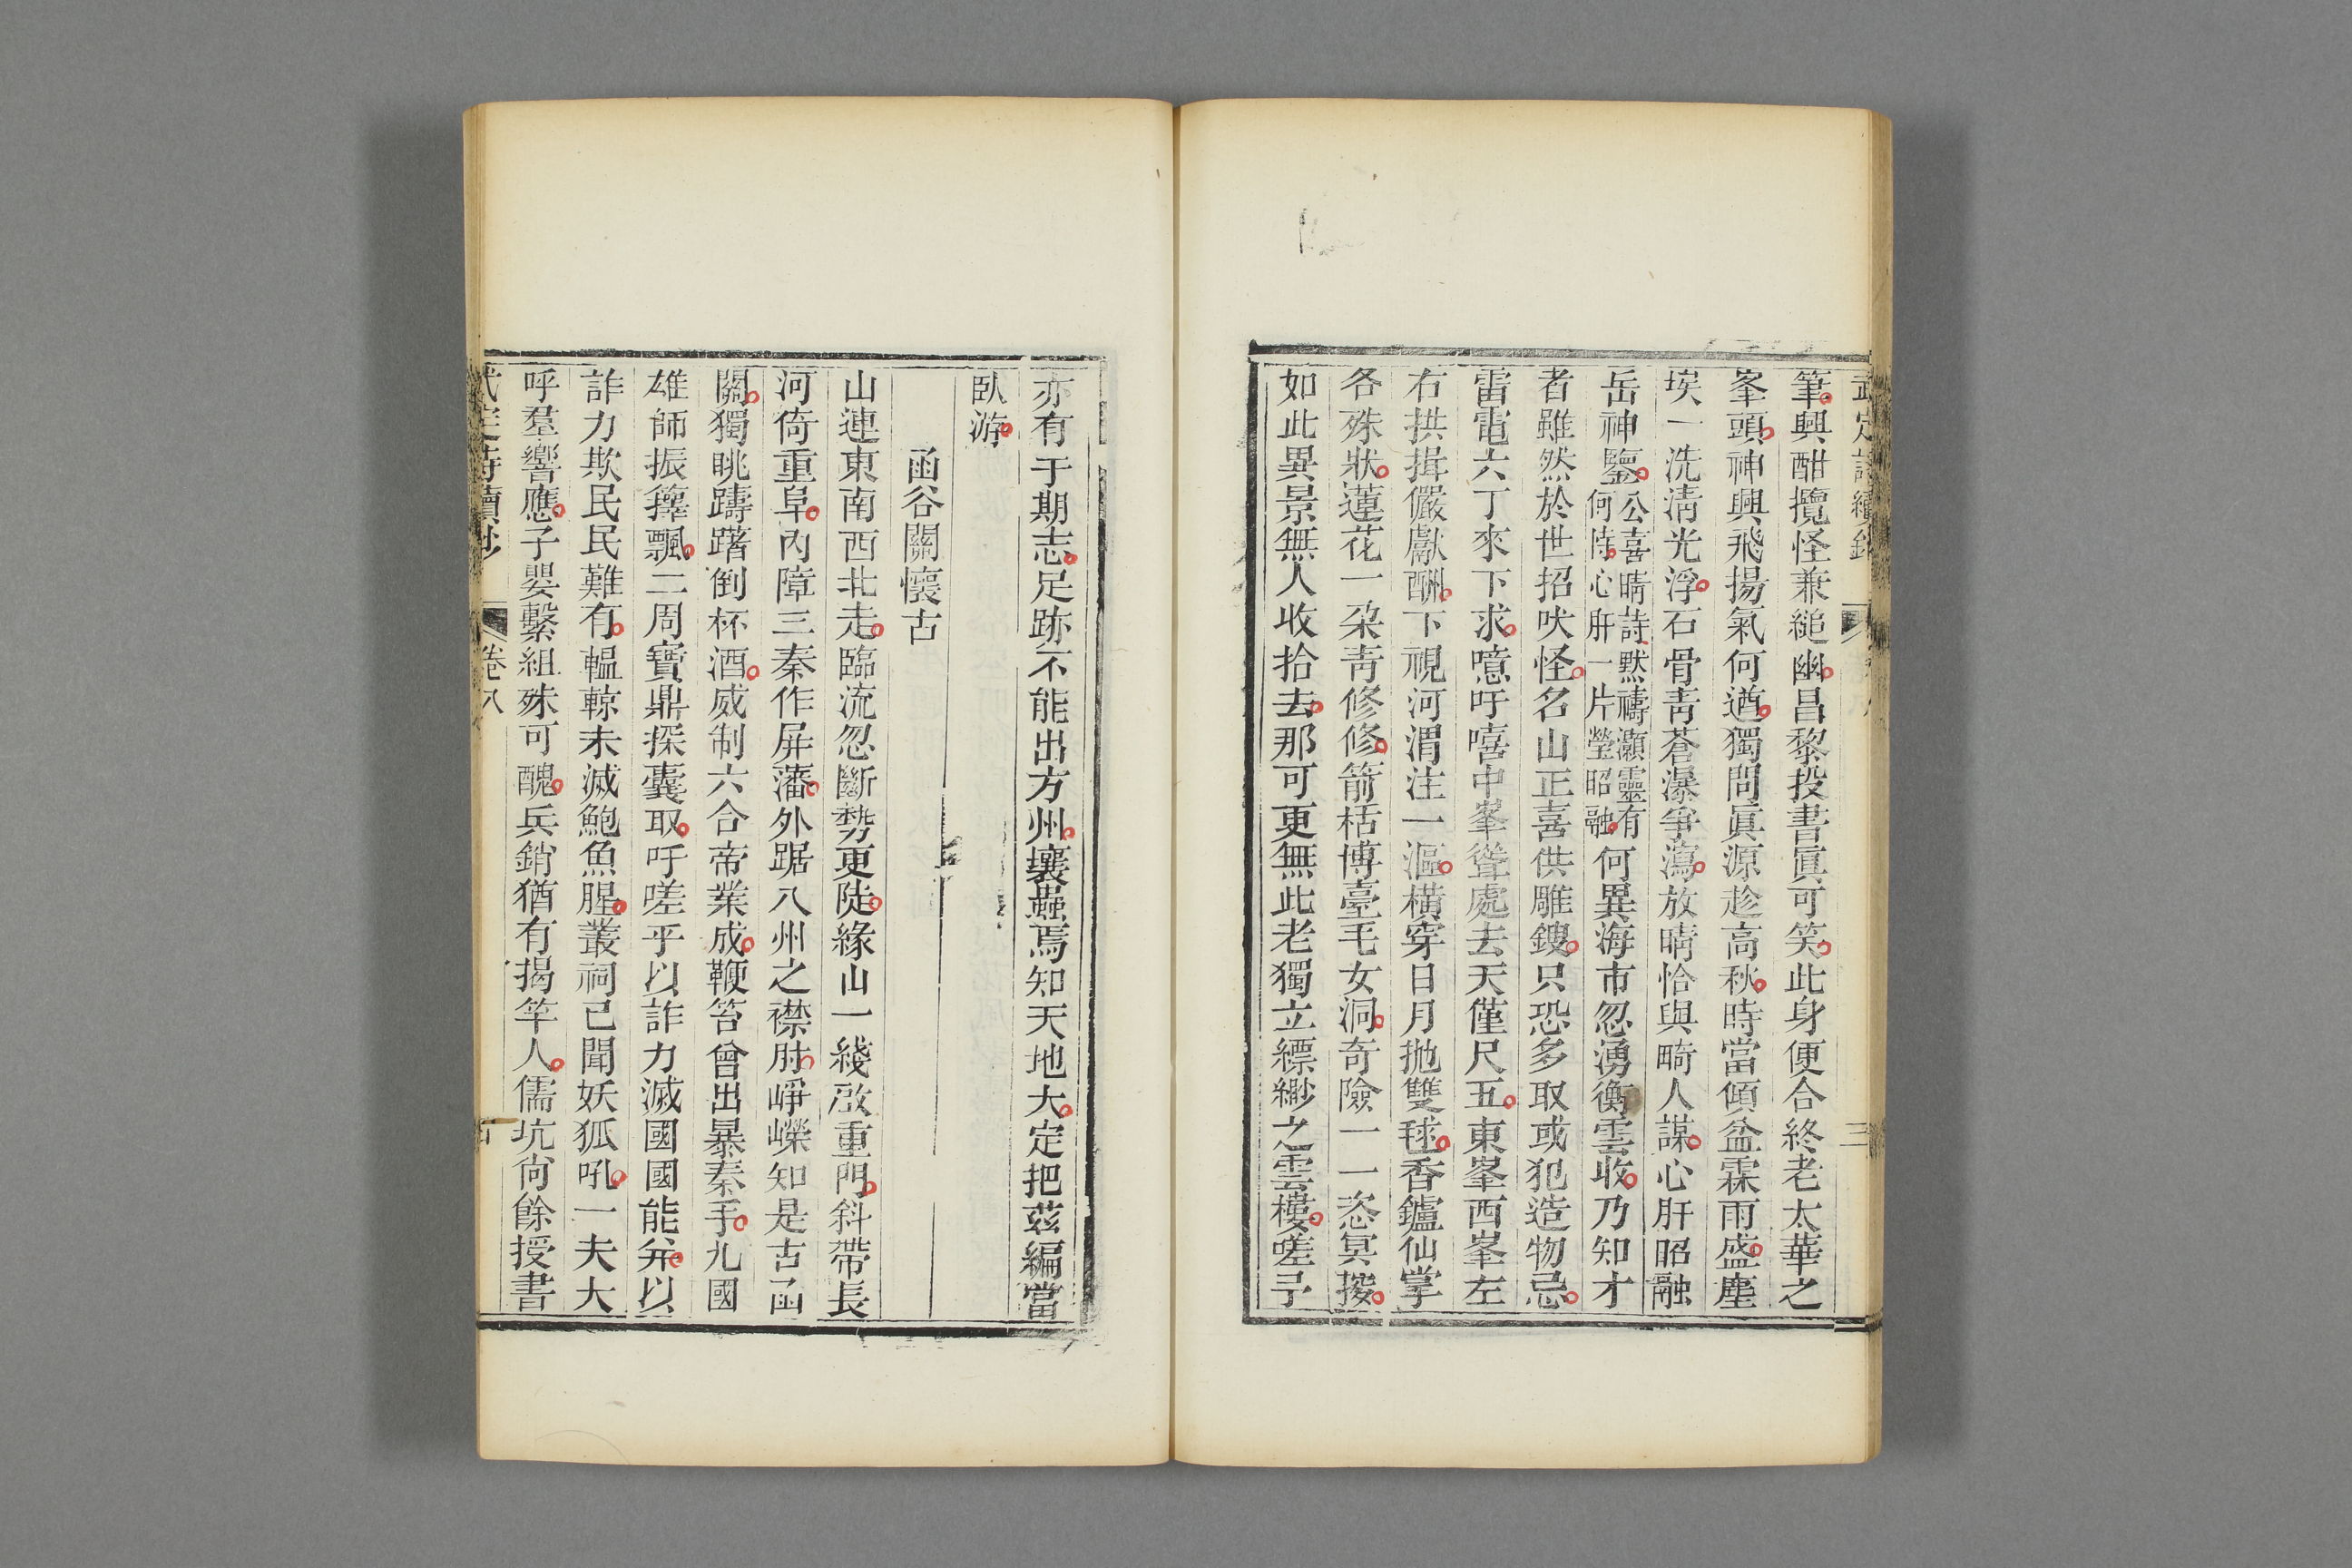 武定詩續鈔
三
筆興酣攬怪兼縋幽昌黎投書眞可笑此身便合終老太華之
峯頭神興飛揚氣何遒獨問眞源趁高秋時當傾盆霖雨盛塵
埃一洗淸光浮石骨靑蒼瀑爭瀉放晴恰與畸人謀心肝昭融
岳神鑒公喜晴詩默禱灝靈有何恃心肝一片瑩昭融何異海市忽湧衡雲收乃知才
者雖然於世招吠怪名山正喜供雕鎪只恐多取或犯造物忌
雷電六丁來下求噫吁嘻中峯聳處去天僅尺五東峯西峯左
右拱揖儼獻酬下視河渭注一漚橫穿日月拋雙毬香鑪仙掌
各殊狀蓮花一朶靑修修箭栝博臺毛女洞奇險一一恣冥搜
如此異景無人收拾去那可更無此老獨立縹緲之雲樓嗟予
亦有于期志足跡不能出方州壤蟲焉知天地大定把茲編當
臥游
函谷關懷古
山連東南西北走臨流忽斷勢更陡緣山一綫啟重門斜帶長
河倚重阜內障三秦作屏藩外踞八州之襟肘崢嶸知是古函
關獨眺躊躇倒杯酒威制六合帝業成鞭笞曾出暴秦手九國
雄師振籜飄二周寶鼎探囊取吁嗟乎以詐力滅國國能弁以
詐力欺民民難有轀輬未滅鮑魚腥叢祠已聞妖狐吼一夫大
呼羣響應子嬰繫組殊可醜兵銷猶有揭竿人儒坑尙餘授書
武定詩續鈔
卷八